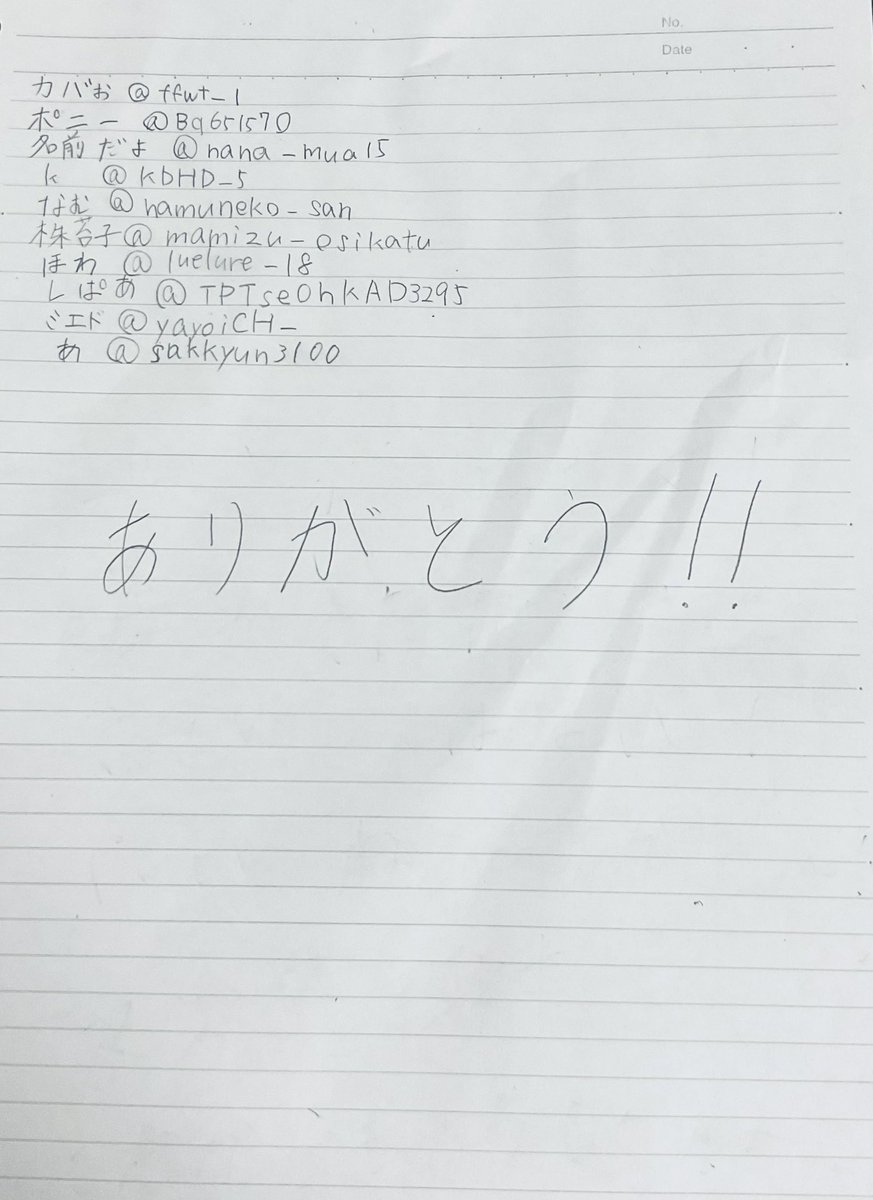 No.
Date
カバお @ffwt_1
ポニー @Bq651570
名前だよ @nana_mua15
k @KbHD_5
なむ @namuneko_san
株苔子@mamizu_osikatu
ほわ @luelure_18
しぱあ @TPTseOhkAD3295
ミエド @yayoiCH_
あ @sakkyun3100
ありがとう!!